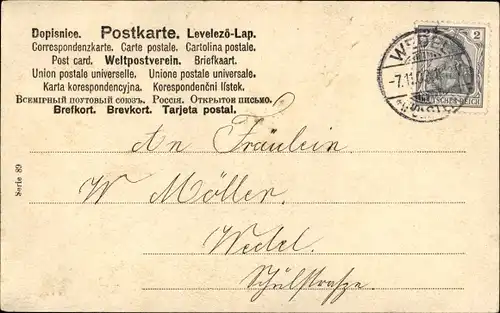 Dopisnice. Postkarte. Levelező-Lap.
Correspondenzkarte. Carte postale. Cartolina postale.
Post card. Weltpostverein. Briefkaart.
Union postale universelle. Unione postale universale.
Karta korespondencyjna. Korespondenční lístek.
Всемірный почтовый союзъ. Россия. Открытое письмо.
Brefkort. Brevkort. Tarjeta postal.
2
WEDEL
-7.11.0
DEUTSCHES REICH
An Fräulein
W Möller.
Wedel.
Schulstraße.
Serie 89